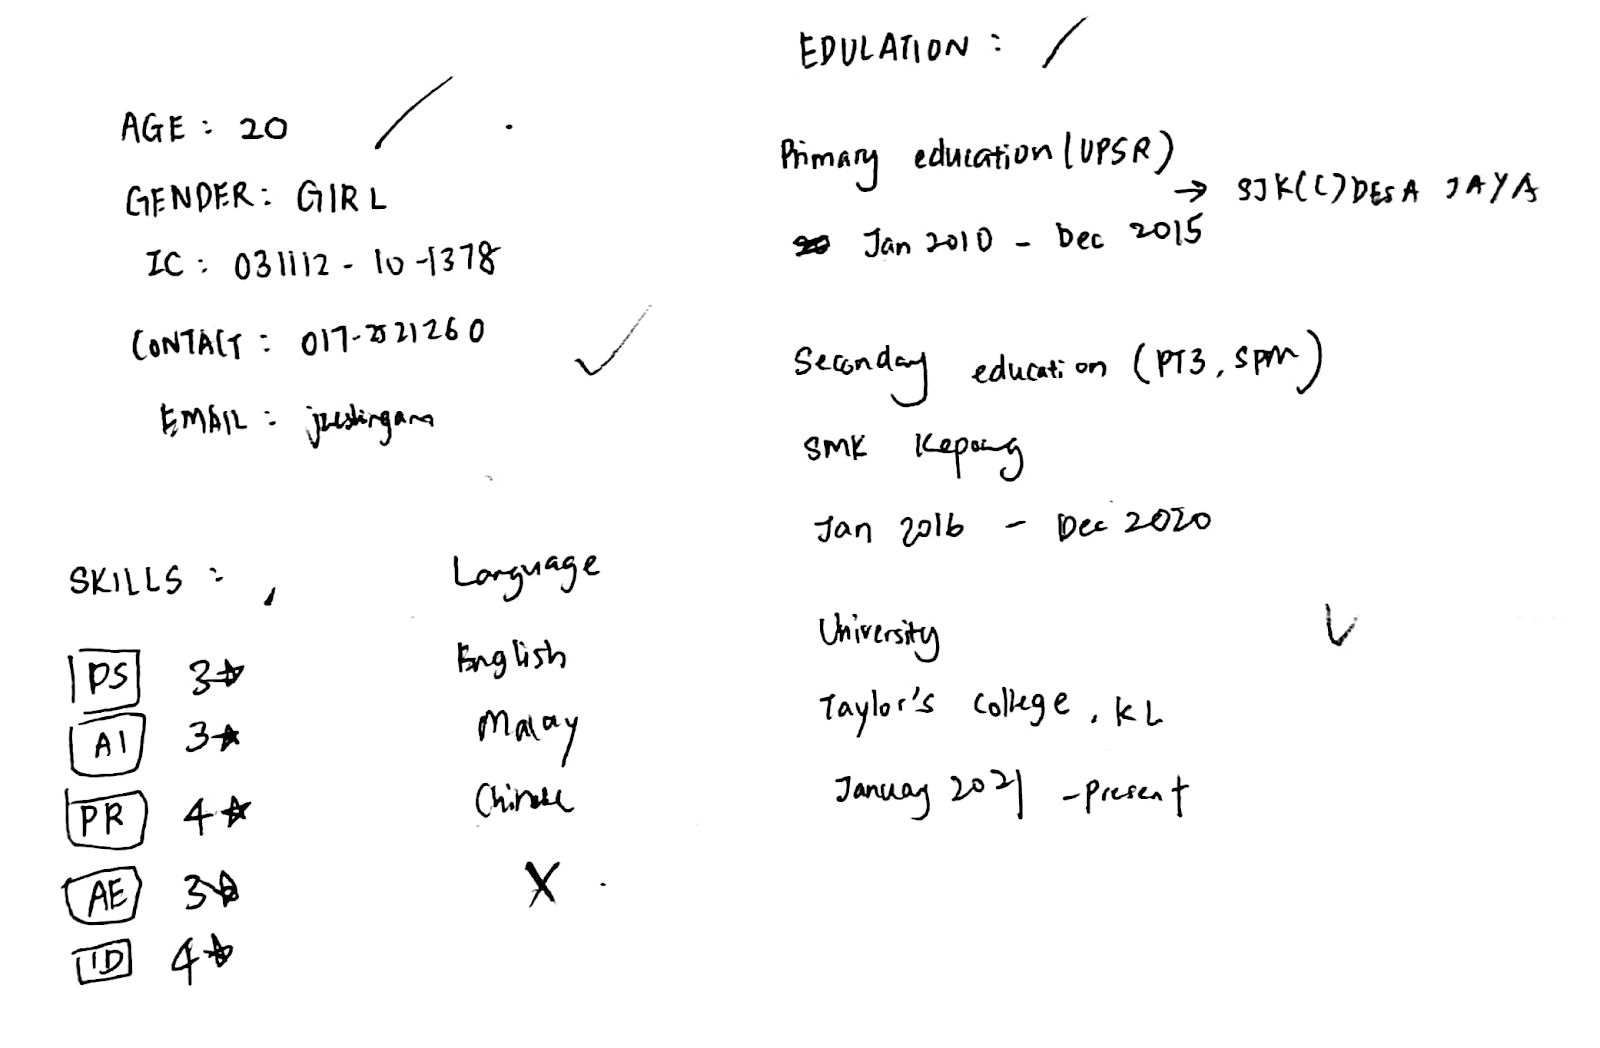 AGE : 20
GENDER : GIRL
IC : 031112 - 10 -1378
CONTACT :
EMAIL :
SKILLS :
PS 3★
AI 3★
PR 4★
AE 3★
ID 4★
Language
English
Malay
Chinese
X
EDULATION : /
Primary education (UPSR)
→ SJK(C) DESA JAYA
Jan 2010 - Dec 2015
Seconday education (PT3, SPM)
SMK Kepong
Jan 2016 - Dec 2020
University
Taylor's college, KL
January 2021 - present